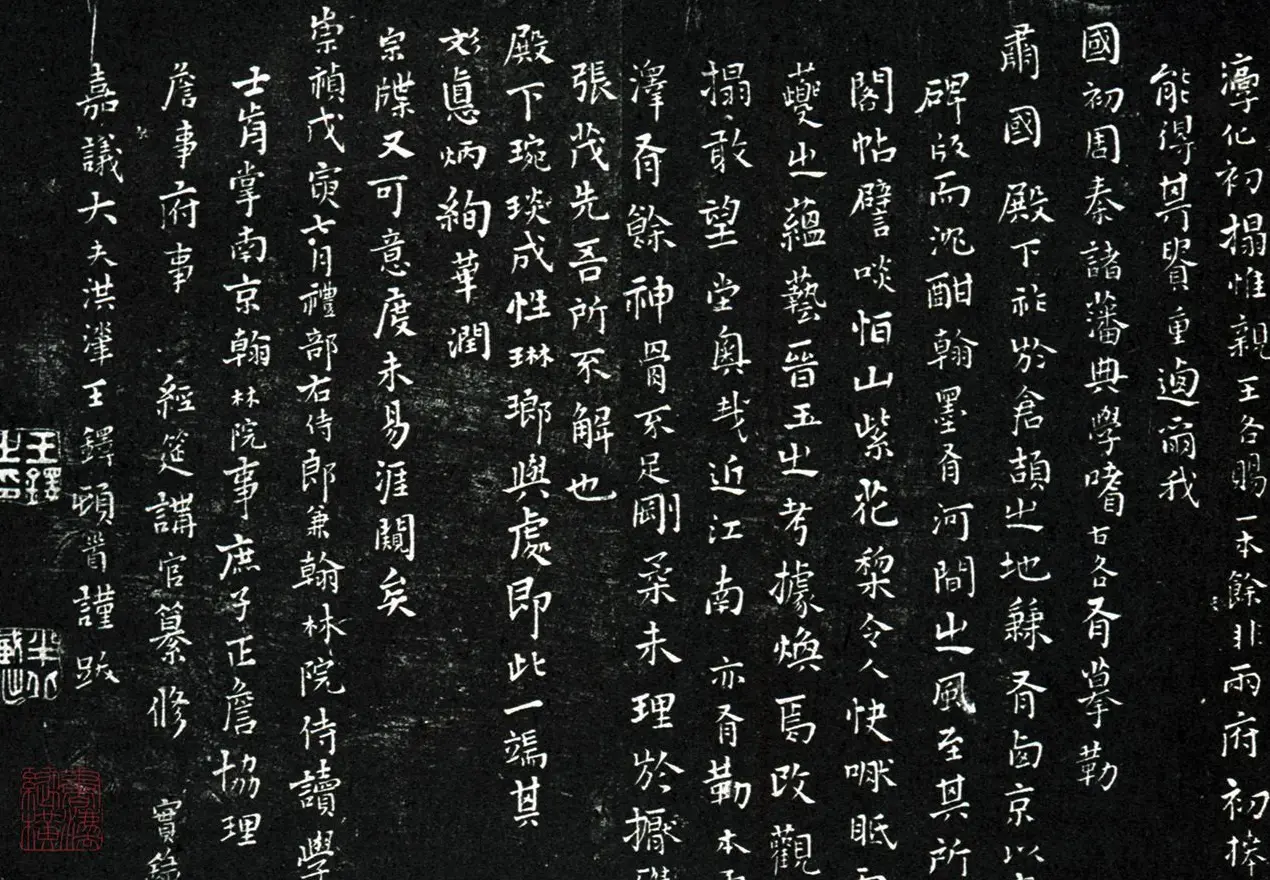 淳化初搨惟親王各賜一本餘非兩府初拜
能得其賢重逈爾我
國初周秦諸藩典學嗜古各有摹勒
肅國殿下祚於倉頡之地蘇有鹵京以
碑版而沈酣翰墨有河間之風至其所
閣帖譬啖怕山紫花棃令人快
蘷之蘊藝晉玉之考據煥焉改觀
搨敢望堂奧哉近江南亦有勒本
澤有餘神骨不足剛柔未理於
張茂先吾所不解也
殿下琬琰成性琳瑯與處即此一端其
彣悳炳絢華潤
宗牒又可意度未易涯闚矣
崇禎戊寅七月禮部右侍郎兼翰林院侍讀學
士肯掌南京翰林院事庶子正詹協理
詹事府事 經筵講官纂修 實錄
嘉議大夫洪肇王鐸頓首謹跋
王鐸之印